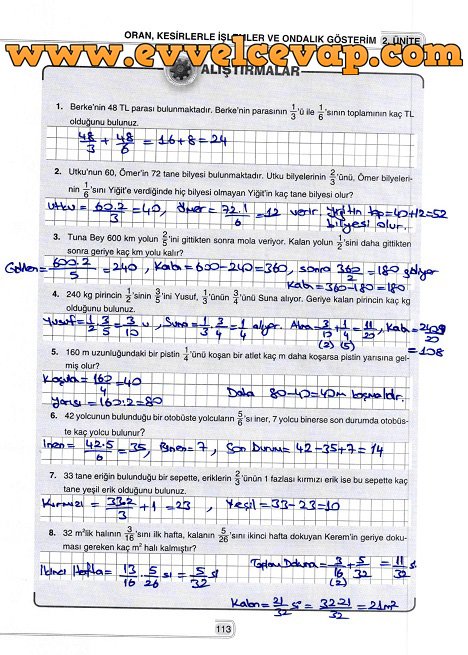 ORAN, KESİRLERLE İŞLEMLER VE ONDALIK GÖSTERİM 2. ÜNİTE
www.evvelcevap.com
ALIŞTIRMALAR
1. Berke'nin 48 TL parası bulunmaktadır. Berke'nin parasının 1/3'ü ile 1/6'sının toplamının kaç TL
olduğunu bulunuz.
48/3 + 48/6 = 16+8=24
2. Utku'nun 60, Ömer'in 72 tane bilyesi bulunmaktadır. Utku bilyelerinin 2/3'ünü, Ömer bilyeleri-
nin 1/6'sını Yiğit'e verdiğinde hiç bilyesi olmayan Yiğit'in kaç tane bilyesi olur?
Utku = 60.2/3 = 40, Ömer = 72.1/6 = 12 verir. Yiğitin top=40+12=52
bilyesi olur.
3. Tuna Bey 600 km yolun 2/5'ini gittikten sonra mola veriyor. Kalan yolun 1/2'sini daha gittikten
sonra geriye kaç km yolu kalır?
= 600.2/5 = 240, Kalan = 600-240=360, sonra 360/2 = 180 gidiyor
Kalan = 360-180=180
4. 240 kg pirincin 1/2'sinin 3/5'ini Yusuf, 1/3'ünün 3/4'ünü Suna alıyor. Geriye kalan pirincin kaç kg
olduğunu bulunuz.
Yusuf = 1/2 . 3/5 = 3/10 u, Suna = 1/3 . 3/4 = 1/4 alıyor. 3/10 + 1/4 = 11/20, Kalan = 240.9/20
(2) (5) = 108
5. 160 m uzunluğundaki bir pistin 1/4'ünü koşan bir atlet kaç m daha koşarsa pistin yarısına gel-
miş olur?
= 160/4 = 40
Yarısı = 160:2 = 80 Daha 80-40=40m koşmalıdır.
6. 42 yolcunun bulunduğu bir otobüste yolcuların 5/6'sı iner, 7 yolcu binerse son durumda otobüs-
te kaç yolcu bulunur?
İnen = 42.5/6 = 35, Binen = 7, Son Durum = 42-35+7=14
7. 33 tane eriğin bulunduğu bir sepette, eriklerin 2/3'ünün 1 fazlası kırmızı erik ise bu sepette kaç
tane yeşil erik olduğunu bulunuz.
Kırmızı = 33.2/3 + 1 = 23, Yeşil = 33-23=10
8. 32 m²lik halının 3/16'sını ilk hafta, kalanın 5/26'sını ikinci hafta dokuyan Kerem'in geriye doku-
ması gereken kaç m² halı kalmıştır?
İkinci Hafta = 13/16 . 5/26 sı = 5/32 si Toplam Dokuma = 3/16 + 5/32 = 11/32 si
(2)
Kalan = 21/32 si = 32.21/32 = 21m²
113